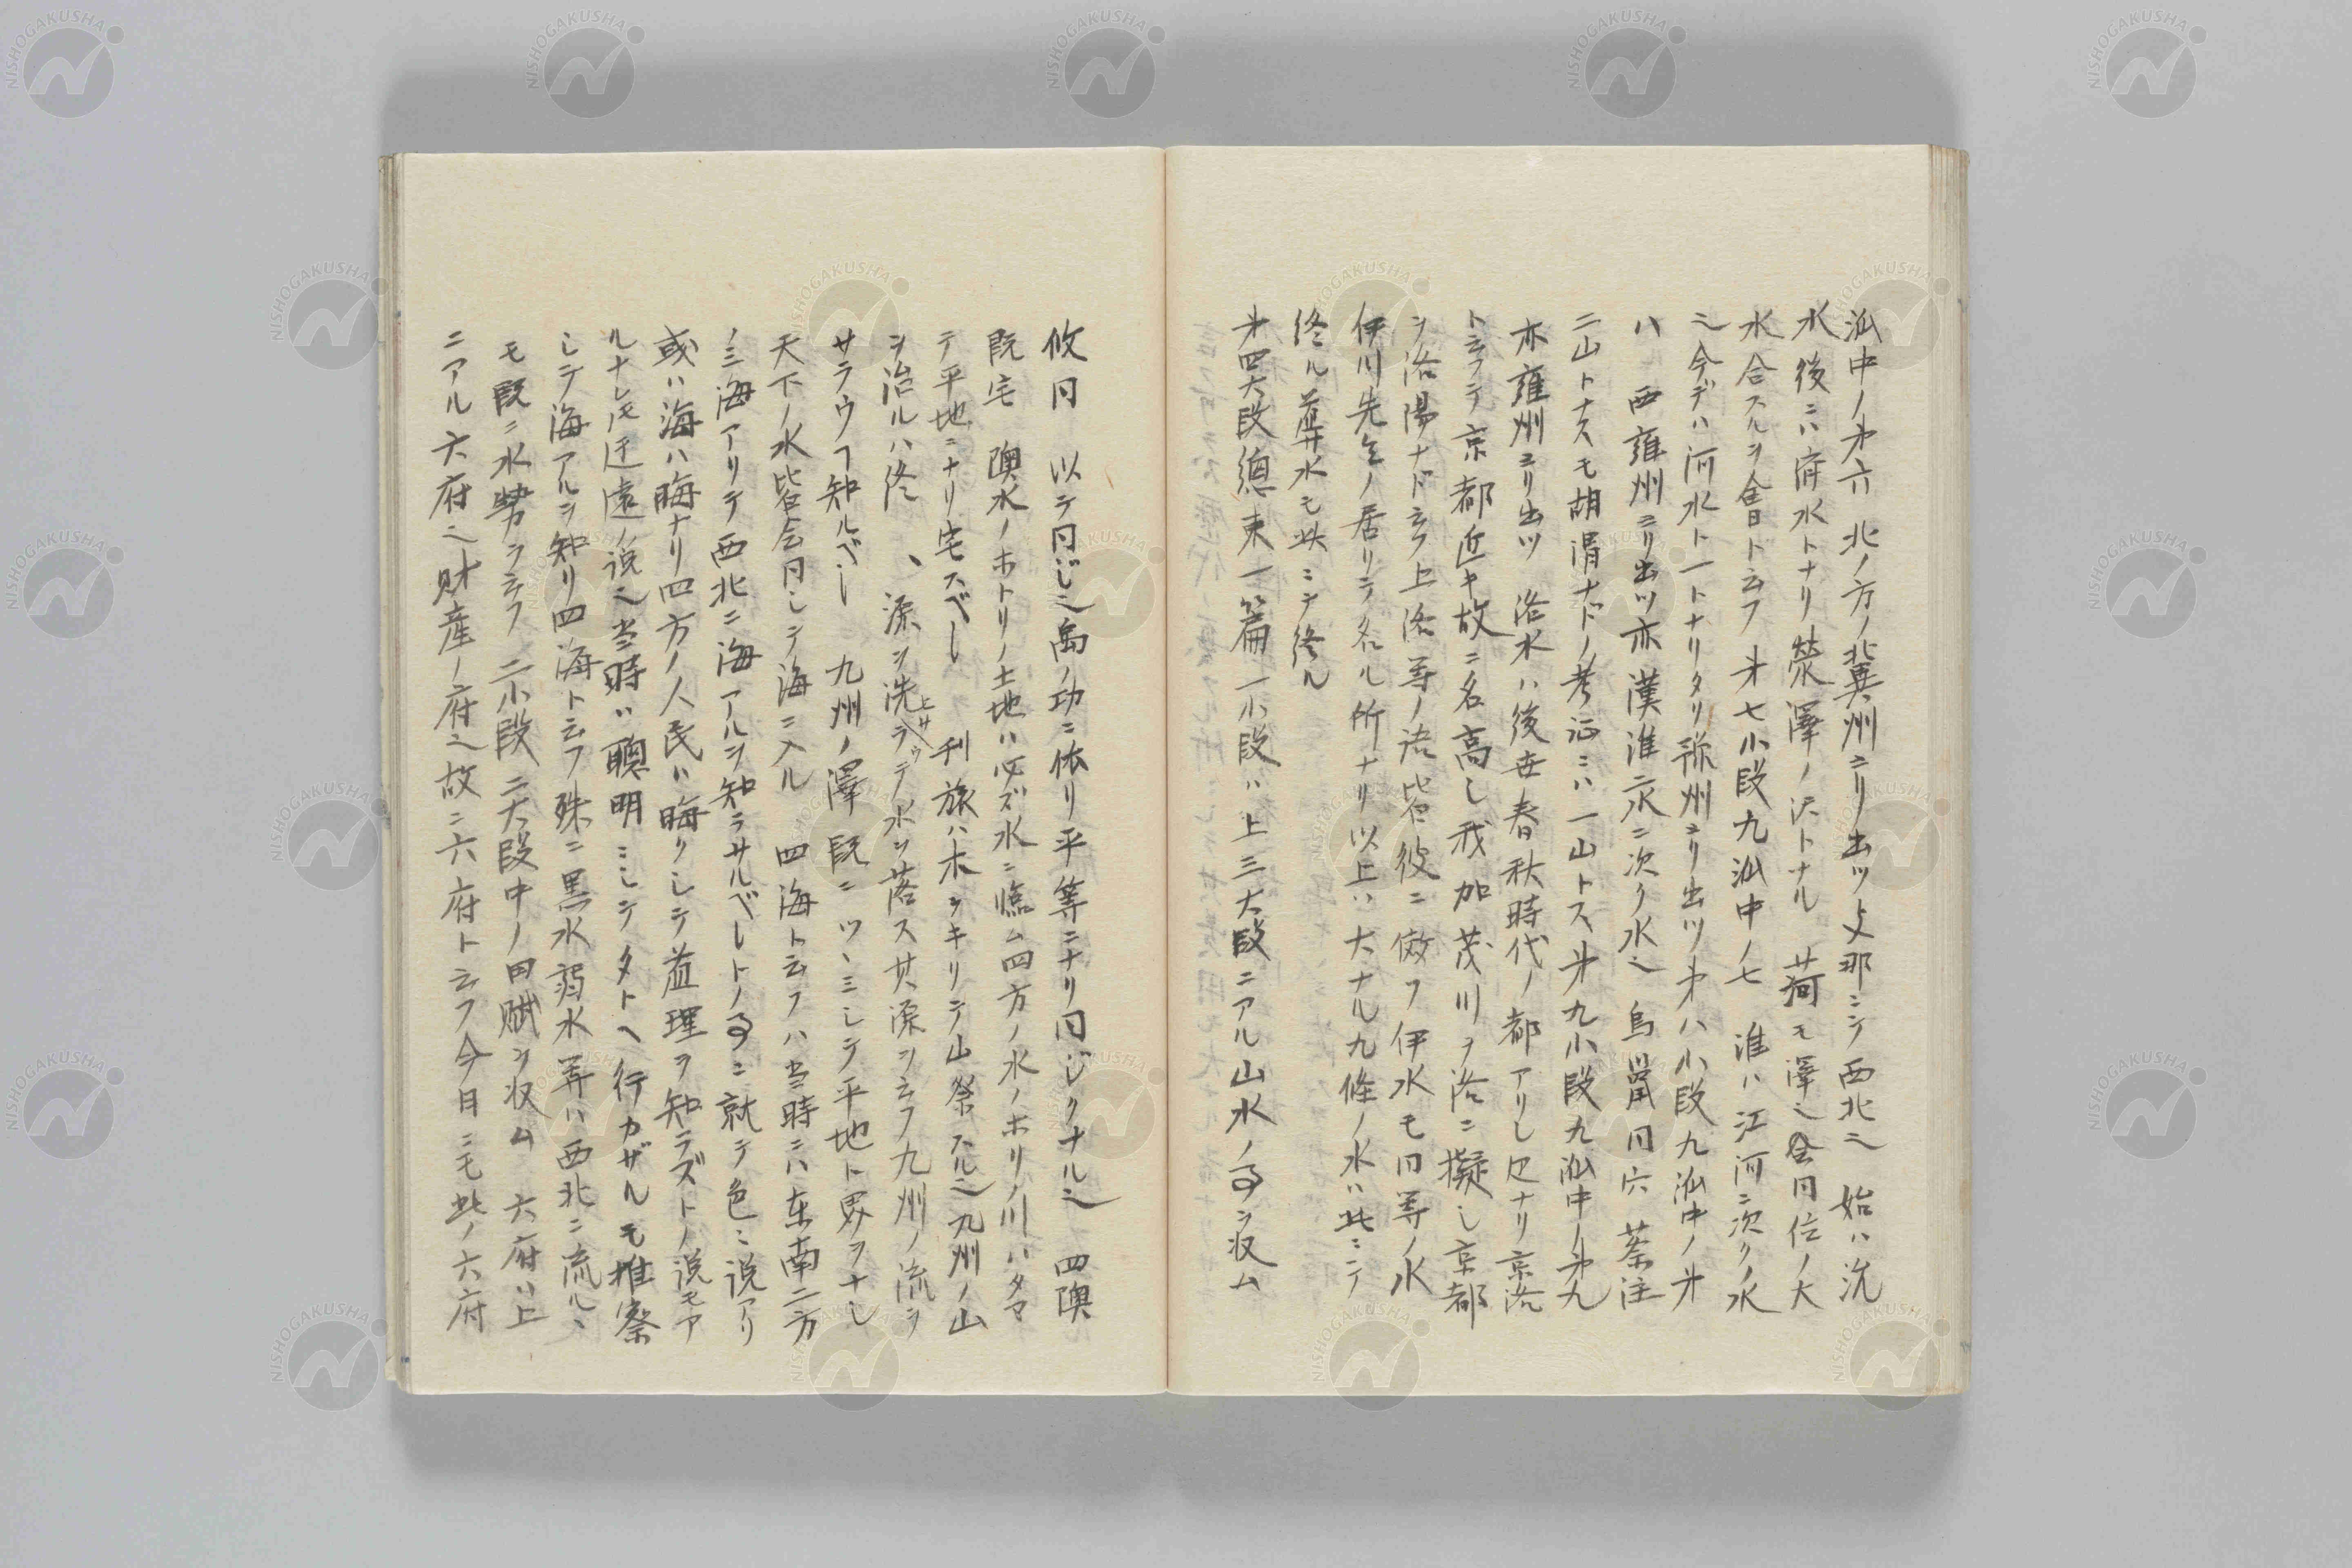 沠中ノ㐧六 北ノ方ノ冀州ヨリ出ツ 支那ニシテ西北也 始ハ沇
水 後ニハ府水トナリ 滎澤ノ沢トナル 菏モ澤也 会同位ノ大
水合スルヲ會ト云フ 㐧七小段九沠中ノ七 淮ハ江河ニ次クノ水
也 今デハ河水ト一トナリタリ 豫州ヨリ出ツ 㐧八小段九沠中ノ㐧
八 西雍州ヨリ出ツ 亦漢淮二水ニ次ク水也 鳥鼠同穴 蔡注
二山トナスモ胡渭ナドノ考証ニハ一山トス 㐧九小段九沠中ノ㐧九
亦雍州ヨリ出ツ 洛水ハ後世春秋時代ノ都アリし㔺ナリ 京洛
ト云フテ京都近キ故ニ名高し 我加茂川ヲ洛ニ擬し京都
ヲ洛陽ナド云フ 上洛等ノ語皆彼ニ倣フ 伊水モ同等ノ水
伊川先生ノ居リテ名ル所ナリ 以上ハ大ナル九條ノ水ハ此ニテ
終ル 導水モ此ニテ終ル
㐧四大段總束一篇 一小段ハ上三大段ニアル山水ノ事ヲ収ム
攸同 以テ同じ也 禹ノ功ニ依リ平等ニナリ同じクナル也 四隩
既宅 隩水ノホトリノ土地ハ必ズ水ニ臨ム 四方ノ水ノホリノ川ハタマ
テ平地ニナリ宅スべし 刊旅ハ木ヲキリテ山祭スル也 九州ノ山
ヲ治ルハ終、 源ヲ洗ラテ水ヲ落ス 其源ヲ云フ 九州ノ流ヲ
サラウヿ知ルべし 九州ノ澤既ニツヽミシテ平地ト界ヲナし
天下ノ水皆会同しテ海ニ入ル 四海ト云フハ当時ニハ东南二方
ノミ海アリテ西北ニ海アルヲ知ラサルべしトノ事ニ就テ色ミ説アリ
或ハ海ハ晦ナリ 四方ノ人民ハ晦クしテ並理ヲ知ラズトノ説モア
ルナレ𪜈迂遠ノ説也 当時ハ聰明ニしテタトヘ行カザルモ推察
しテ海アルヲ知リ四海ト云フ 殊ニ黒水弱水等ハ西北ニ流ルヽ
モ既ニ水勢ヲ云フ 二小段ニ大段中ノ田賦ヲ収ム 六府ハ上
ニアル六府也 財産ノ府也 故ニ六府ト云フ 今日ニモ此ノ六府